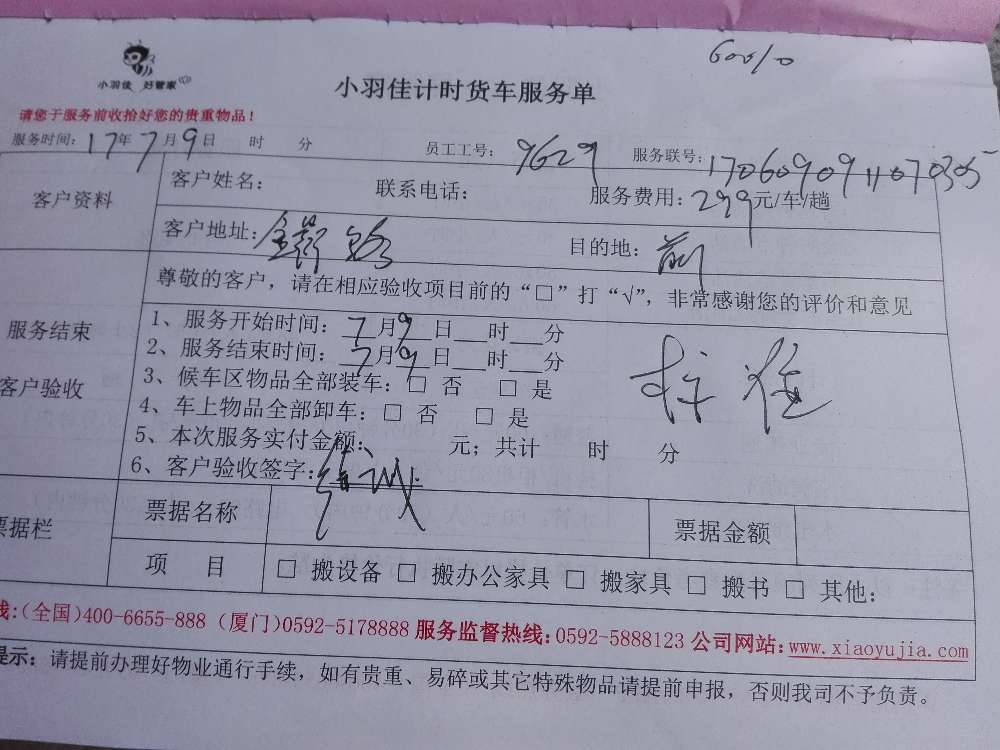 600/0
小羽佳 好管家
小羽佳计时货车服务单
请您于服务前收拾好您的贵重物品！
服务时间：17年7月9日 时 分 员工工号：9629 服务联号：
客户资料
客户姓名： 联系电话： 服务费用：299元/车/趟
客户地址： 路 目的地：
尊敬的客户，请在相应验收项目前的“□”打“√”，非常感谢您的评价和意见
服务结束
客户验收
1、服务开始时间：7月9日___时___分
2、服务结束时间：7月9日___时___分
3、候车区物品全部装车：□ 否 □ 是
4、车上物品全部卸车：□ 否 □ 是
5、本次服务实付金额： 元；共计 时 分
6、客户验收签字：
票据栏
票据名称 票据金额
项 目 □ 搬设备 □ 搬办公家具 □ 搬家具 □ 搬书 □ 其他：
线：(全国)400-6655-888 (厦门)0592-5178888 服务监督热线：0592-5888123 公司网站：www.xiaoyujia.com
提示：请提前办理好物业通行手续，如有贵重、易碎或其它特殊物品请提前申报，否则我司不予负责。